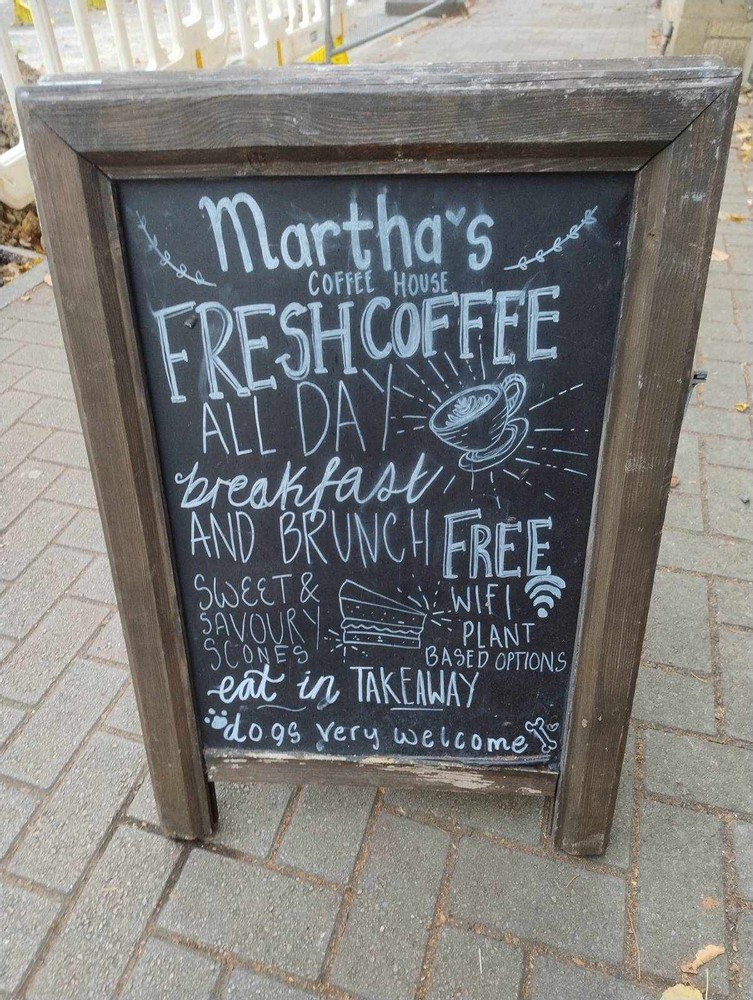 Martha's
COFFEE HOUSE
FRESH COFFEE
ALL DAY
breakfast
AND BRUNCH
FREE
WIFI
SWEET &
SAVOURY
SCONES
PLANT
BASED OPTIONS
eat in TAKEAWAY
dogs very welcome